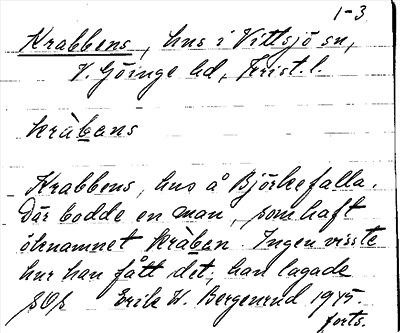 1-3
Krabbens, hus i Vittsjö sn,
V. Göinge hd, Krist. l.
kràbans
Krabbens, hus å Björkefalla.
Där bodde en man, som haft
öknamnet kràban. Ingen visste
hur han fått det; han lagade
Erik W. Bergenrud 1945.
forts.